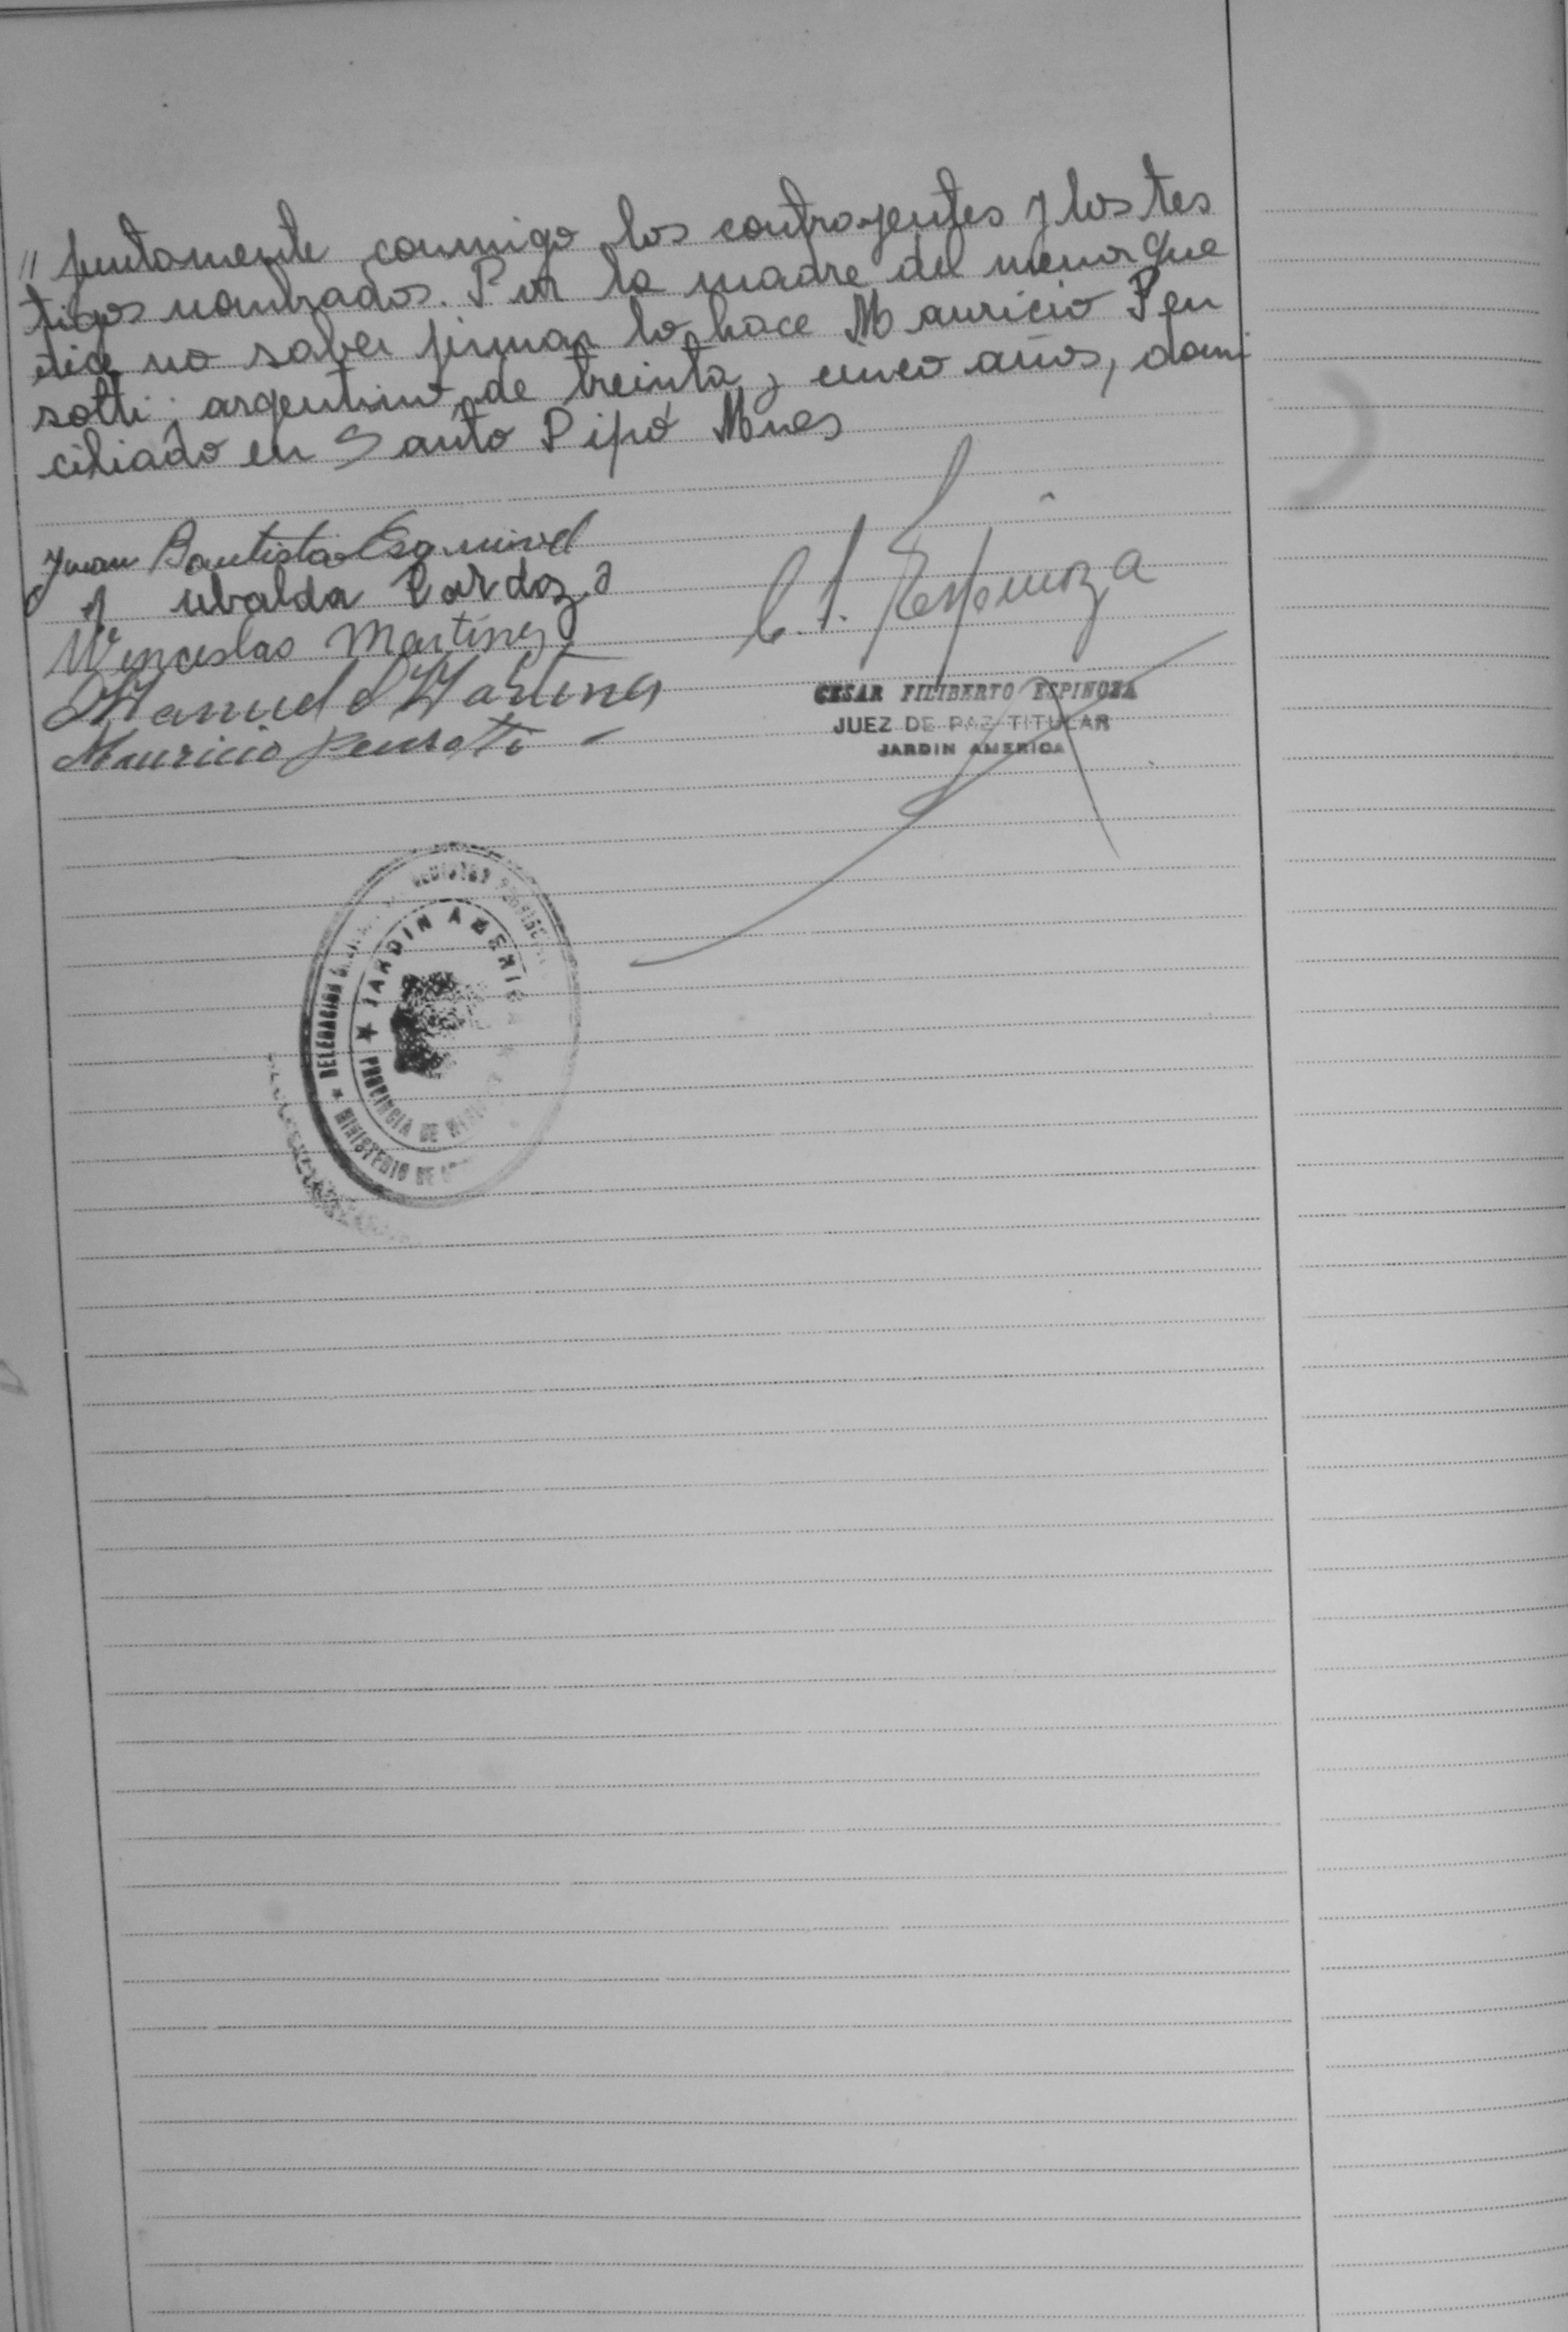 // juntamente conmigo los contrayentes y los tes
tigos nombrados. Por la madre del menor que
dice no saber firmar lo hace Mauricio Pen
sotti, argentino de treinta y cinco años, domi
ciliado en Santo Pipó Mnes
Juan Bautista Esquivel
ubalda Cardozo
Wenceslao Martinez
Manuel Martinez
Mauricio Pensotti
C. F. Espinoza
CESAR FILIBERTO ESPINOZA
JUEZ DE PAZ TITULAR
JARDIN AMERICA
★ DELEGACION
★ JARDIN AMERICA
PROVINCIA DE
MINISTERIO DE